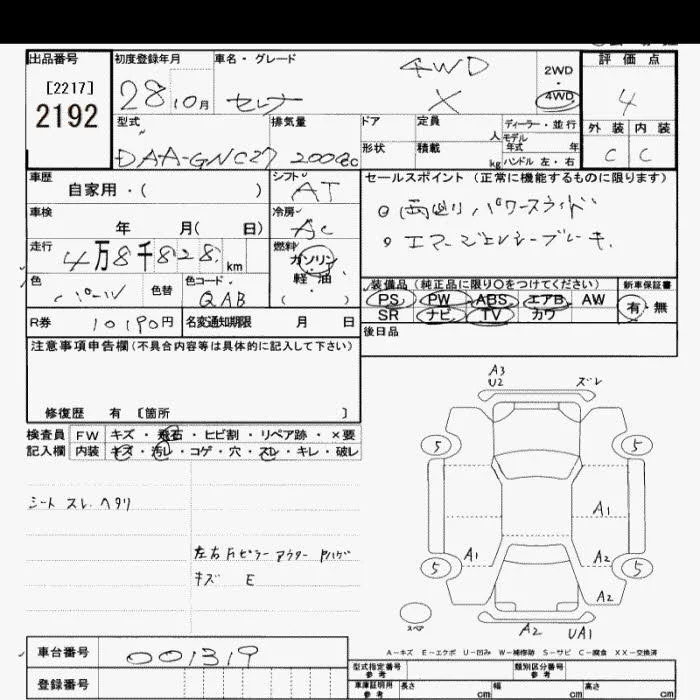 出品番号
[2217]
2192
初度登録年月
28 10月
車名・グレード
セレナ
4WD
X
2WD
4WD
評価点
4
外装 内装
C C
型式
DAA-GNC27
排気量
2000cc
ドア
定員
人
ディーラー・並行
モデル
年式 年
形状
積載
kg
ハンドル 左・右
車歴
自家用・( )
シフト
AT
セールスポイント (正常に機能するものに限ります)
車検
年 月( 日)
冷房
AC
両側パワースライド
エマージェンシーブレーキ.
走行
4万8千828 km
燃料
ガソリン
・
軽・油
( )
色
パール
色替
色コード
QAB
装備品 (純正品に限り〇をつけてください)
新車保証書
PS PW ABS エアB AW
SR ナビ TV カワ
有・無
R券
10190円
名変通知期限 月 日
後日品
注意事項申告欄(不具合内容等は具体的に記入して下さい)
修復歴 有 [箇所 ]
検査員
記入欄
FW キズ・飛石・ヒビ割・リペア跡・×要
内装 キズ・汚レ・コゲ・穴・スレ・キレ・破レ
シート スレ.ヘタリ
左右Fピラー アウター
キズ E
A3
U2
ズレ
5
5
A1
A1
A2
5
5
A2
スペア
A2
UA1
A-キズ E-エクボ U-凹み W-補修跡 S-サビ C-腐食 XX-交換済
車台番号
001319
登録番号
型式指定番号
参考
類別区分番号
参考
車庫証明用
参考
長さ cm
幅 cm
高さ cm